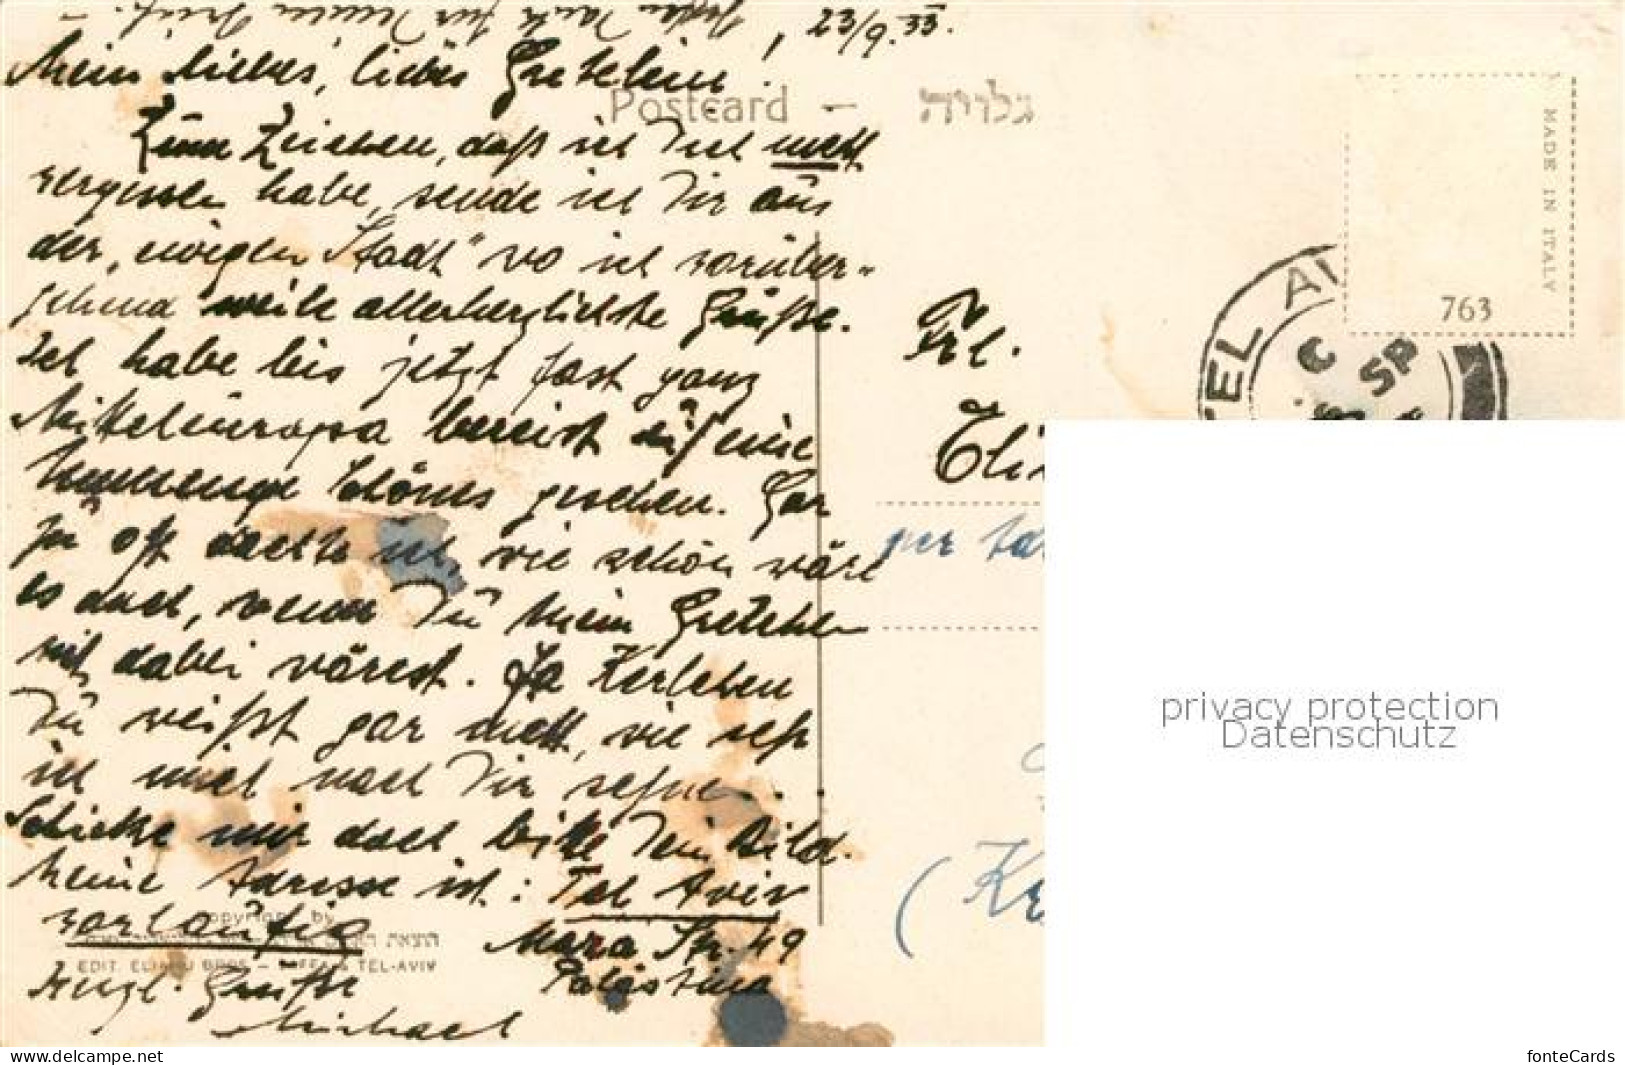 Besten Dank für Deinen Brief. –
23/9.33.
Mein liebes, liebes Gretelein!
Postcard – גלויה
Zum Zeichen, daß ich Dich nicht
vergessen habe, sende ich Dir aus
der „ewigen Stadt" wo ich vorüber-
gehend weile allerherzlichste Grüße.
Ich habe bis jetzt fast ganz
Mitteleuropa bereist auf eine
Unmenge Schönes gesehen. Gar
zu oft dachte ich, wie schön wäre
es doch, wenn Du mein Gretchen
mit dabei wärest. Ja Kerlchen
Du weißt gar nicht, wie sehr
ich mich nach Dir sehne...
Schicke mir doch bitte Dein Bild.
Meine Adresse ist: Tel Aviv
vorläufig Maza Str. 49
Palästina
Herzl. Grüße
Michael
Copyright by
EDIT. ELIAHU BROS – JAFFA & TEL-AVIV
MADE IN ITALY
763
TEL AV
SP
Frl.
per
(Kr
privacy protection
Datenschutz
© the-cards.net
fonteCards